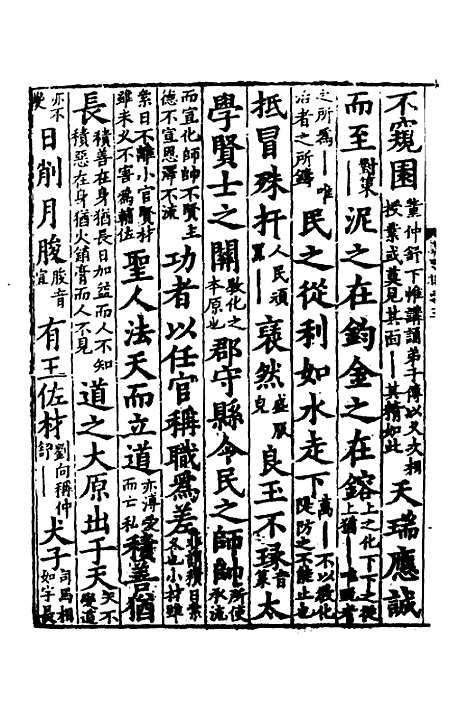 不窺園董仲舒下帷講誦弟子傳以久次相授業或莫見其面——其精如此天瑞應誠
而至對策——泥之在鈞金之在鎔上之化下下之從上猶————唯甄者
之所爲——唯冶者之所鑄民之從利如水走下萬——不以敎化隄防之不能止也
抵冒殊扞人民頑嚚——裒然盛服皃良玉不瑑音篆太
學賢士之關敎化之本原也郡守縣令民之師帥所使承流
而宣化師帥不賢主德不宣恩澤不流功者以任官稱職爲差非謂積日絫久也小材雖
絫日不離小官賢材雖未久不害爲輔佐聖人法天而立道亦溥愛而亡私積善猶
長積善在身猶長日加益而人不知積惡在身猶火銷膏而人不見道之大原出于天天不變道
亦不變日削月朘朘音宣有王佐材劉向稱仲舒——犬子司馬相如字長